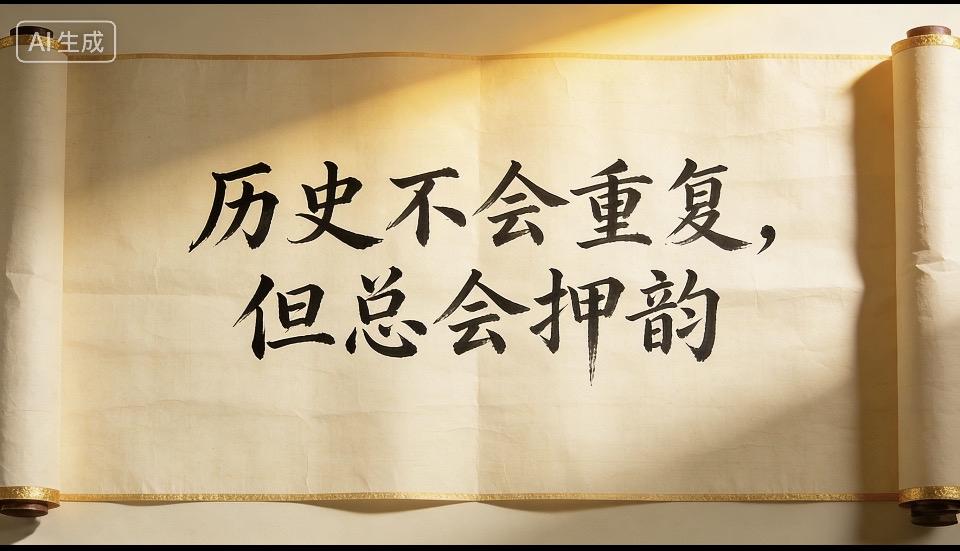 AI生成
历史不会重复，
但总会押韵